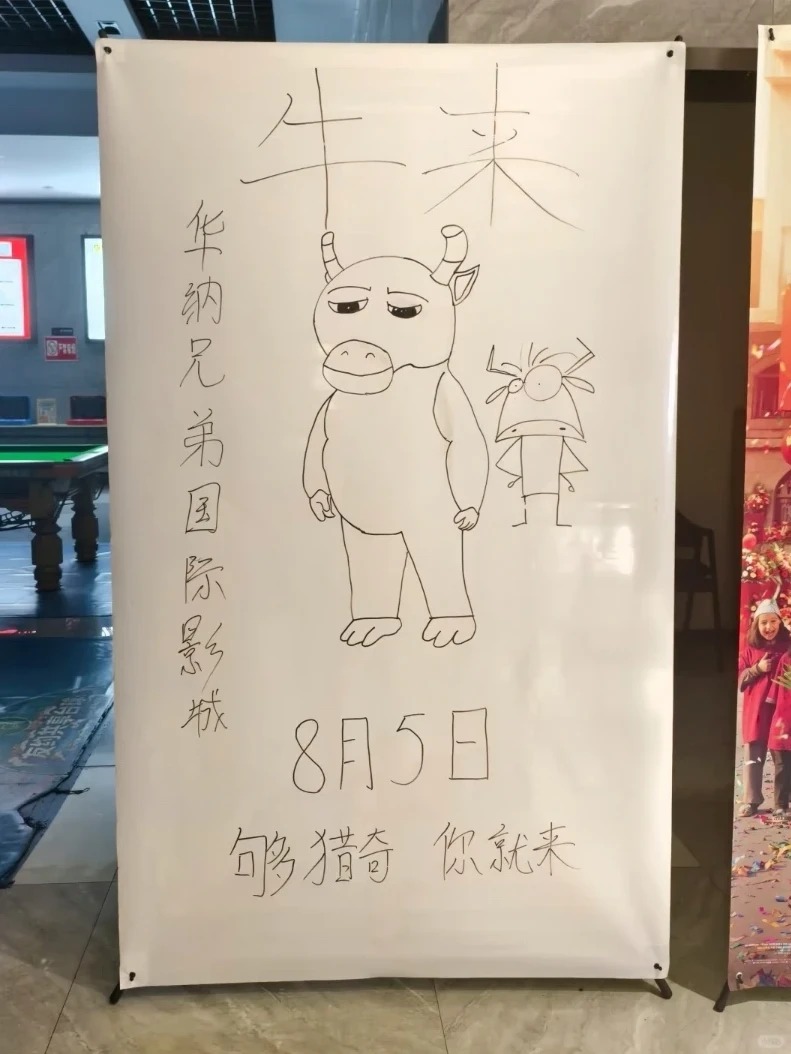 牛来
华纳兄弟国际影城
8月5日
够猎奇 你就来